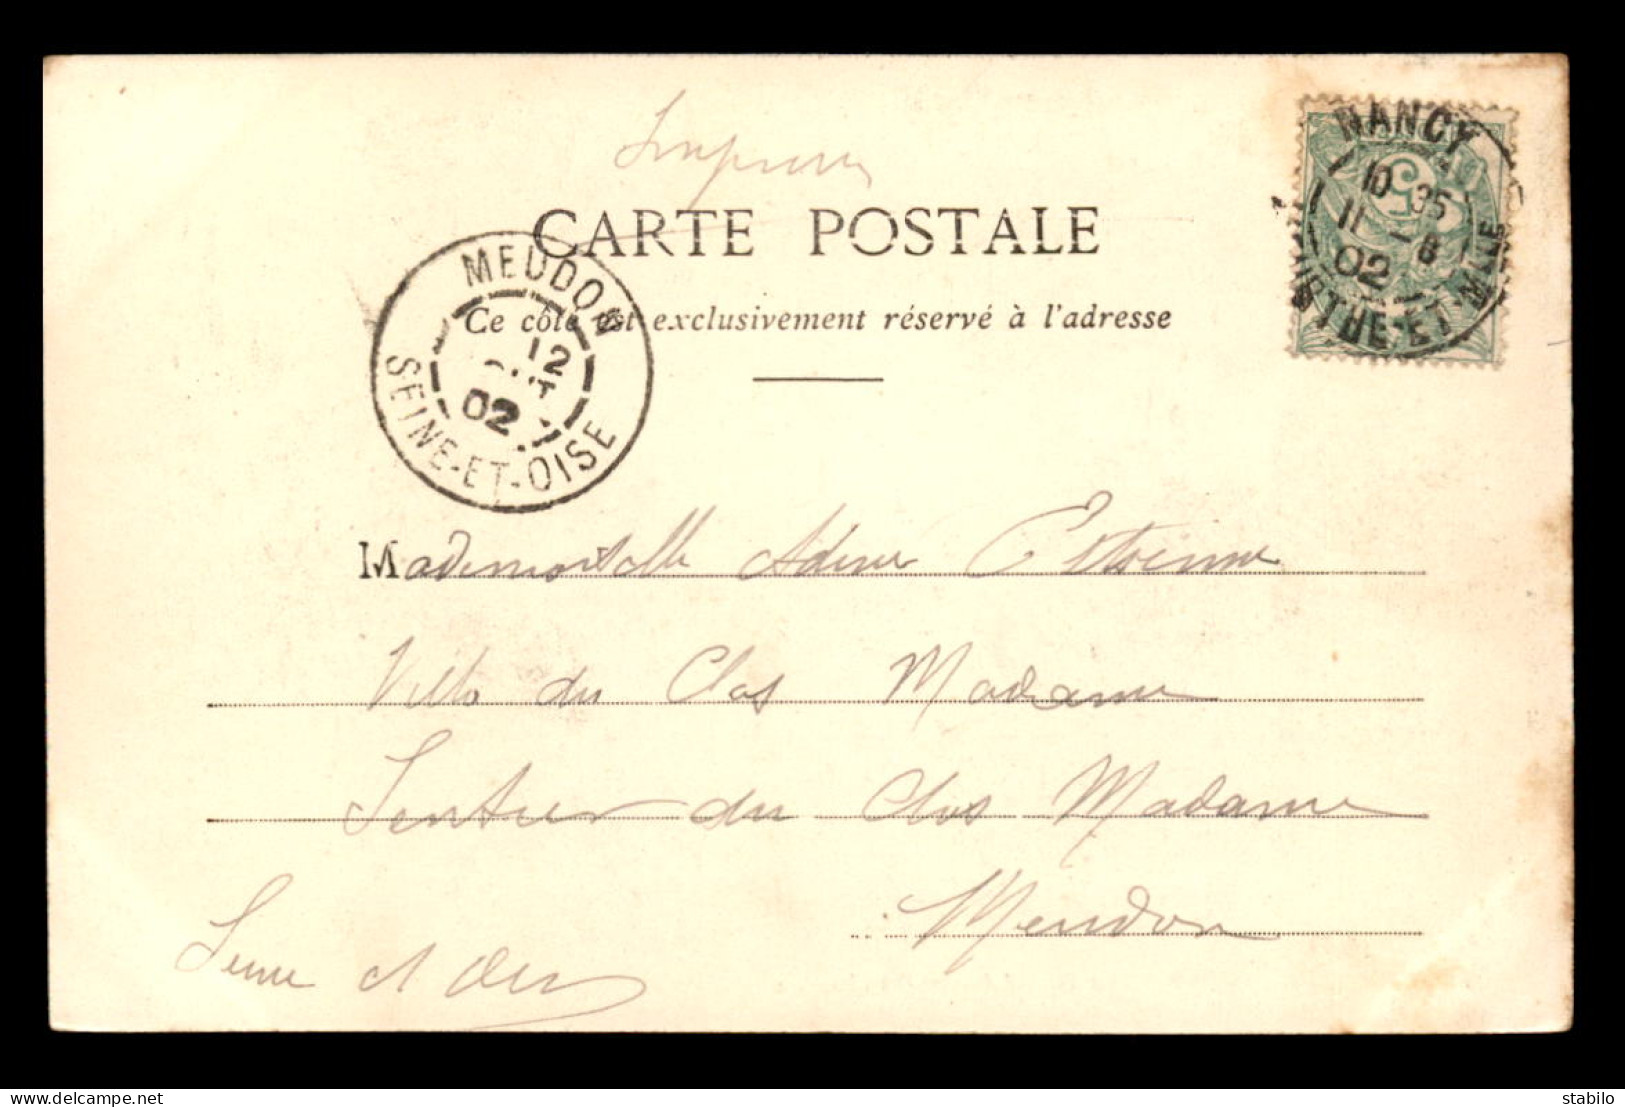 CARTE POSTALE
Ce côté est exclusivement réservé à l'adresse
NANCY
10 35
11 - 8
02
MEURTHE-ET-MLLE
5
MEUDON
12
02
SEINE-ET-OISE
Mademoiselle Adine Estienne
Villa du Clos Madame
Sentier du Clos Madame
Meudon
Seine et Oise
delcampe.net
stabilo